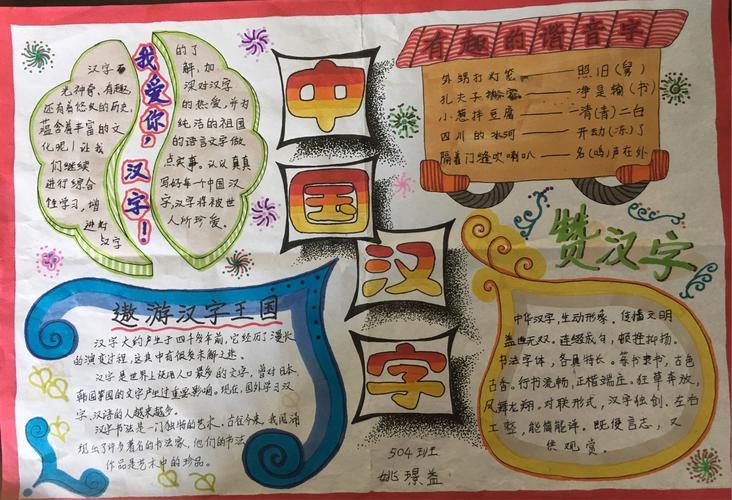 中国汉字
我爱你，汉字！
汉字
光神奇、有趣，
还有着悠久的历史，
蕴含着丰富的文
化呢！让我
们继续
进行综合
性学习，增
进对
汉字
的了
解，加
深对汉字
的热爱，并为
纯洁的祖国
的语言文字做
点实事。认认真真
写好每一个中国汉
字，汉字将被世
人所珍爱。
有趣的谐音字
外甥打灯笼——照旧(舅)
孔夫子搬家——净是输(书)
小葱拌豆腐——清(青)二白
四川的冰河——开动(冻)了
隔着门缝吹喇叭——名(鸣)声在外
遨游汉字王国
汉字大约产生于四千多年前，它经历了漫长
的演变过程，这其中有很多未解之迷。
汉字是世界上使用人口最多的文字，曾对日本、
韩国等国的文字产生过重要影响。现在，国外学习汉
字、汉语的人越来越多。
汉字书法是一门独特的艺术。古往今来，我国涌
现出了许多著名的书法家，他们的书法
作品是艺术中的珍品。
赞汉字
中华汉字，生动形象。传情文明
盖世无双。连缀成句，顿挫抑扬。
书法字体，各具特长。篆书隶书，古色
古香。行书流畅，正楷端庄。狂草奔放，
凤舞龙翔。对联形式，汉字独创。左右
工整，能情能详。既便言志，又
供观赏。
504班
姚璟益